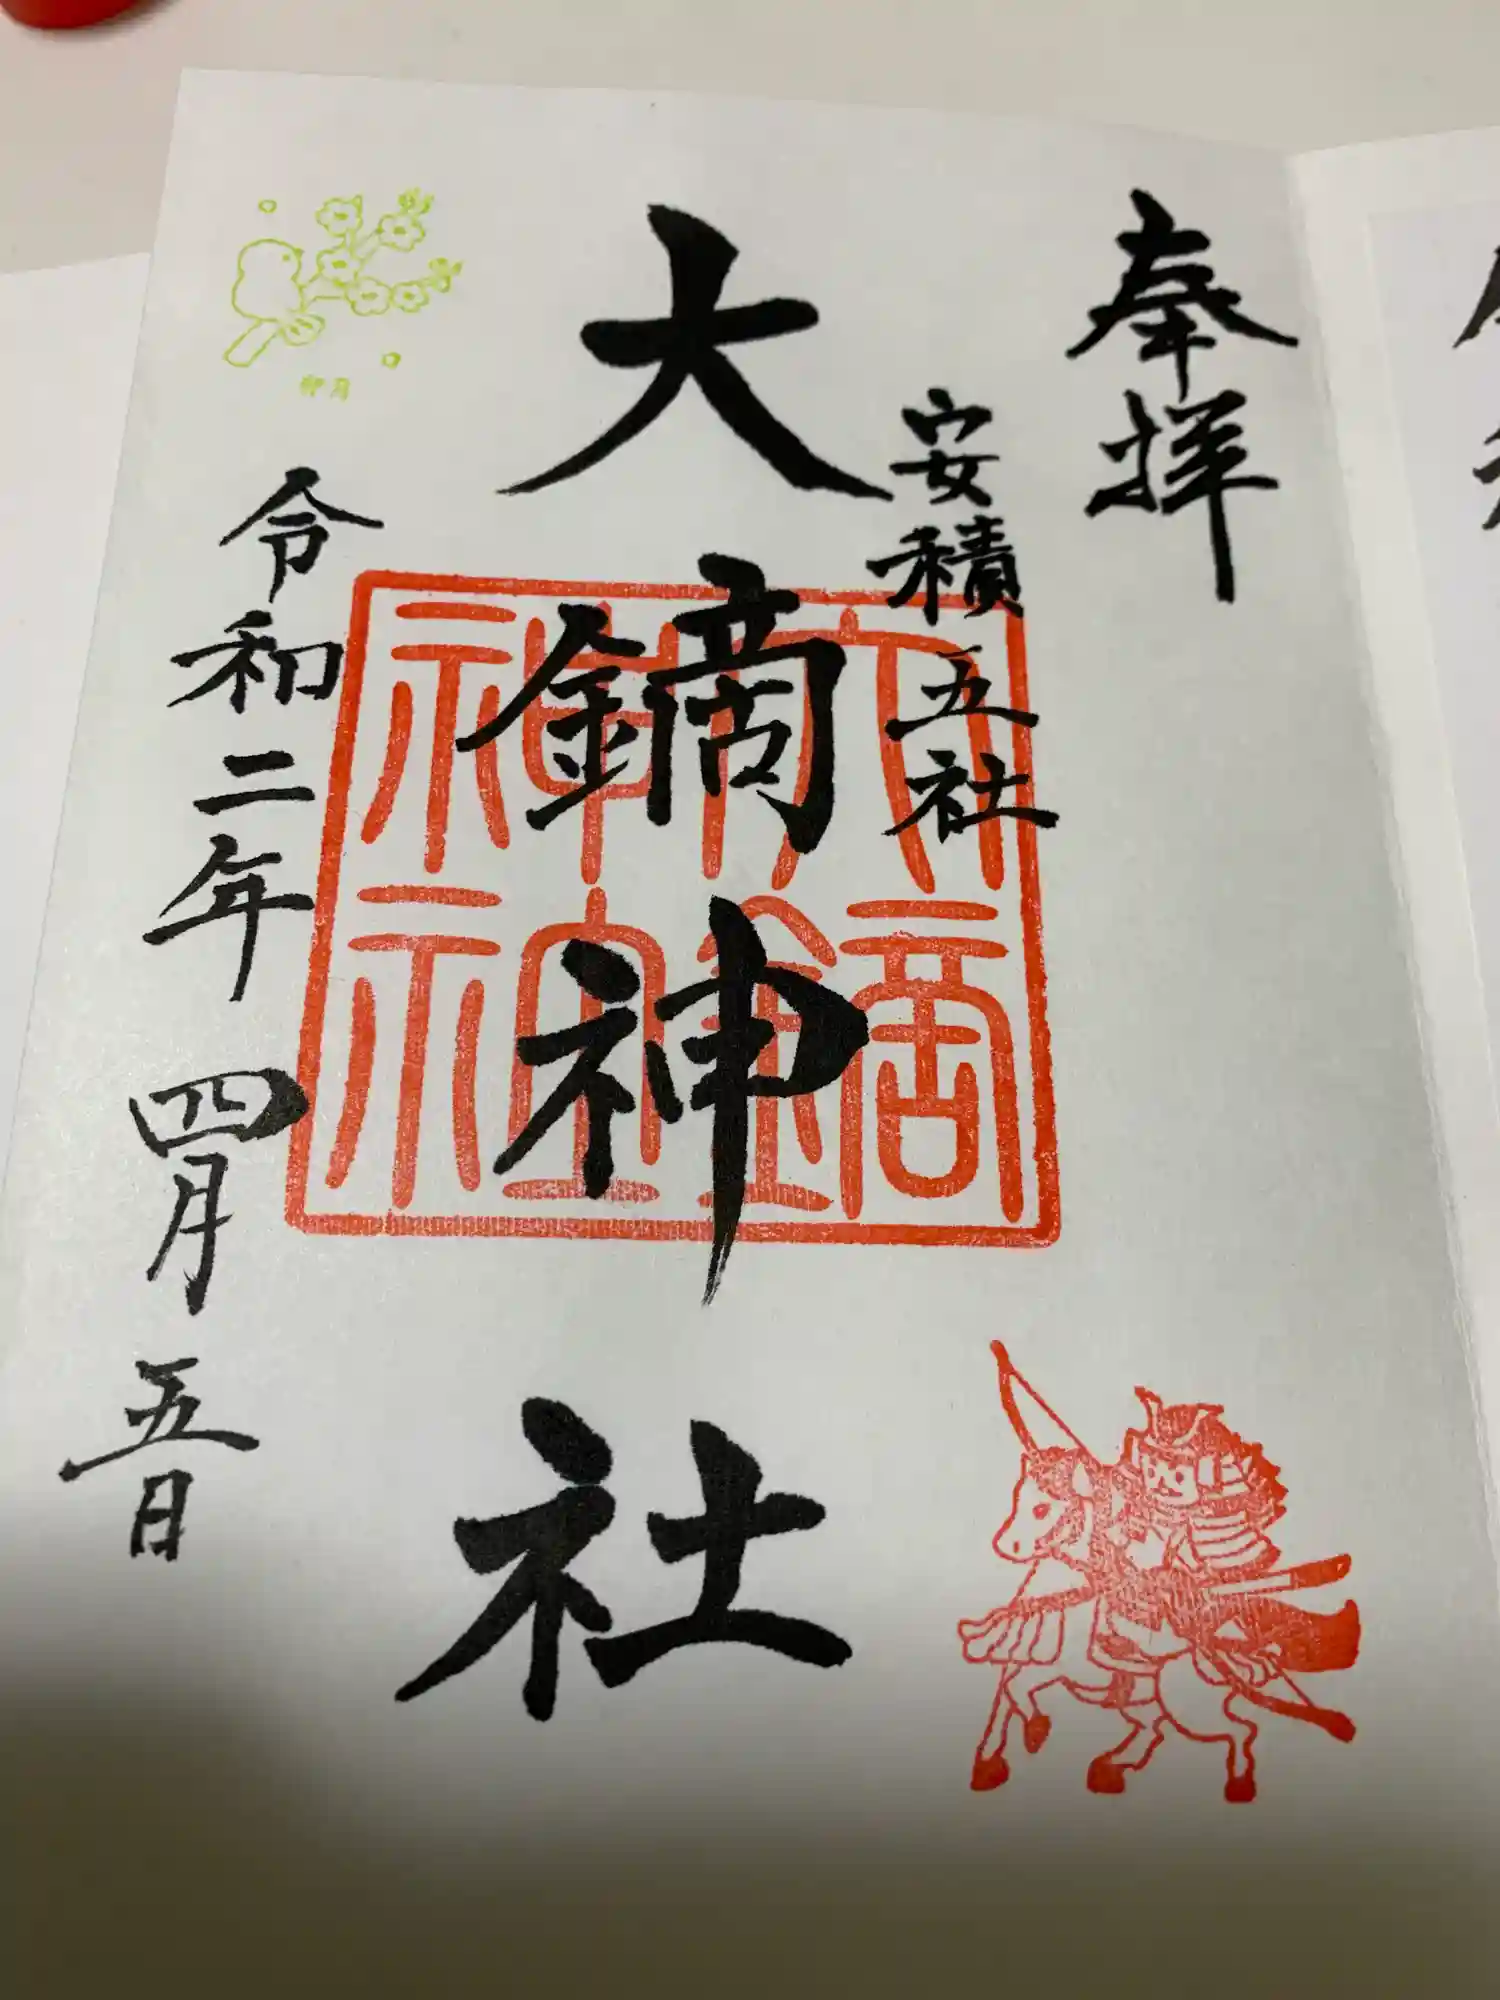 奉拝
安積五社
大鏑神社
令和二年四月五日
卯月